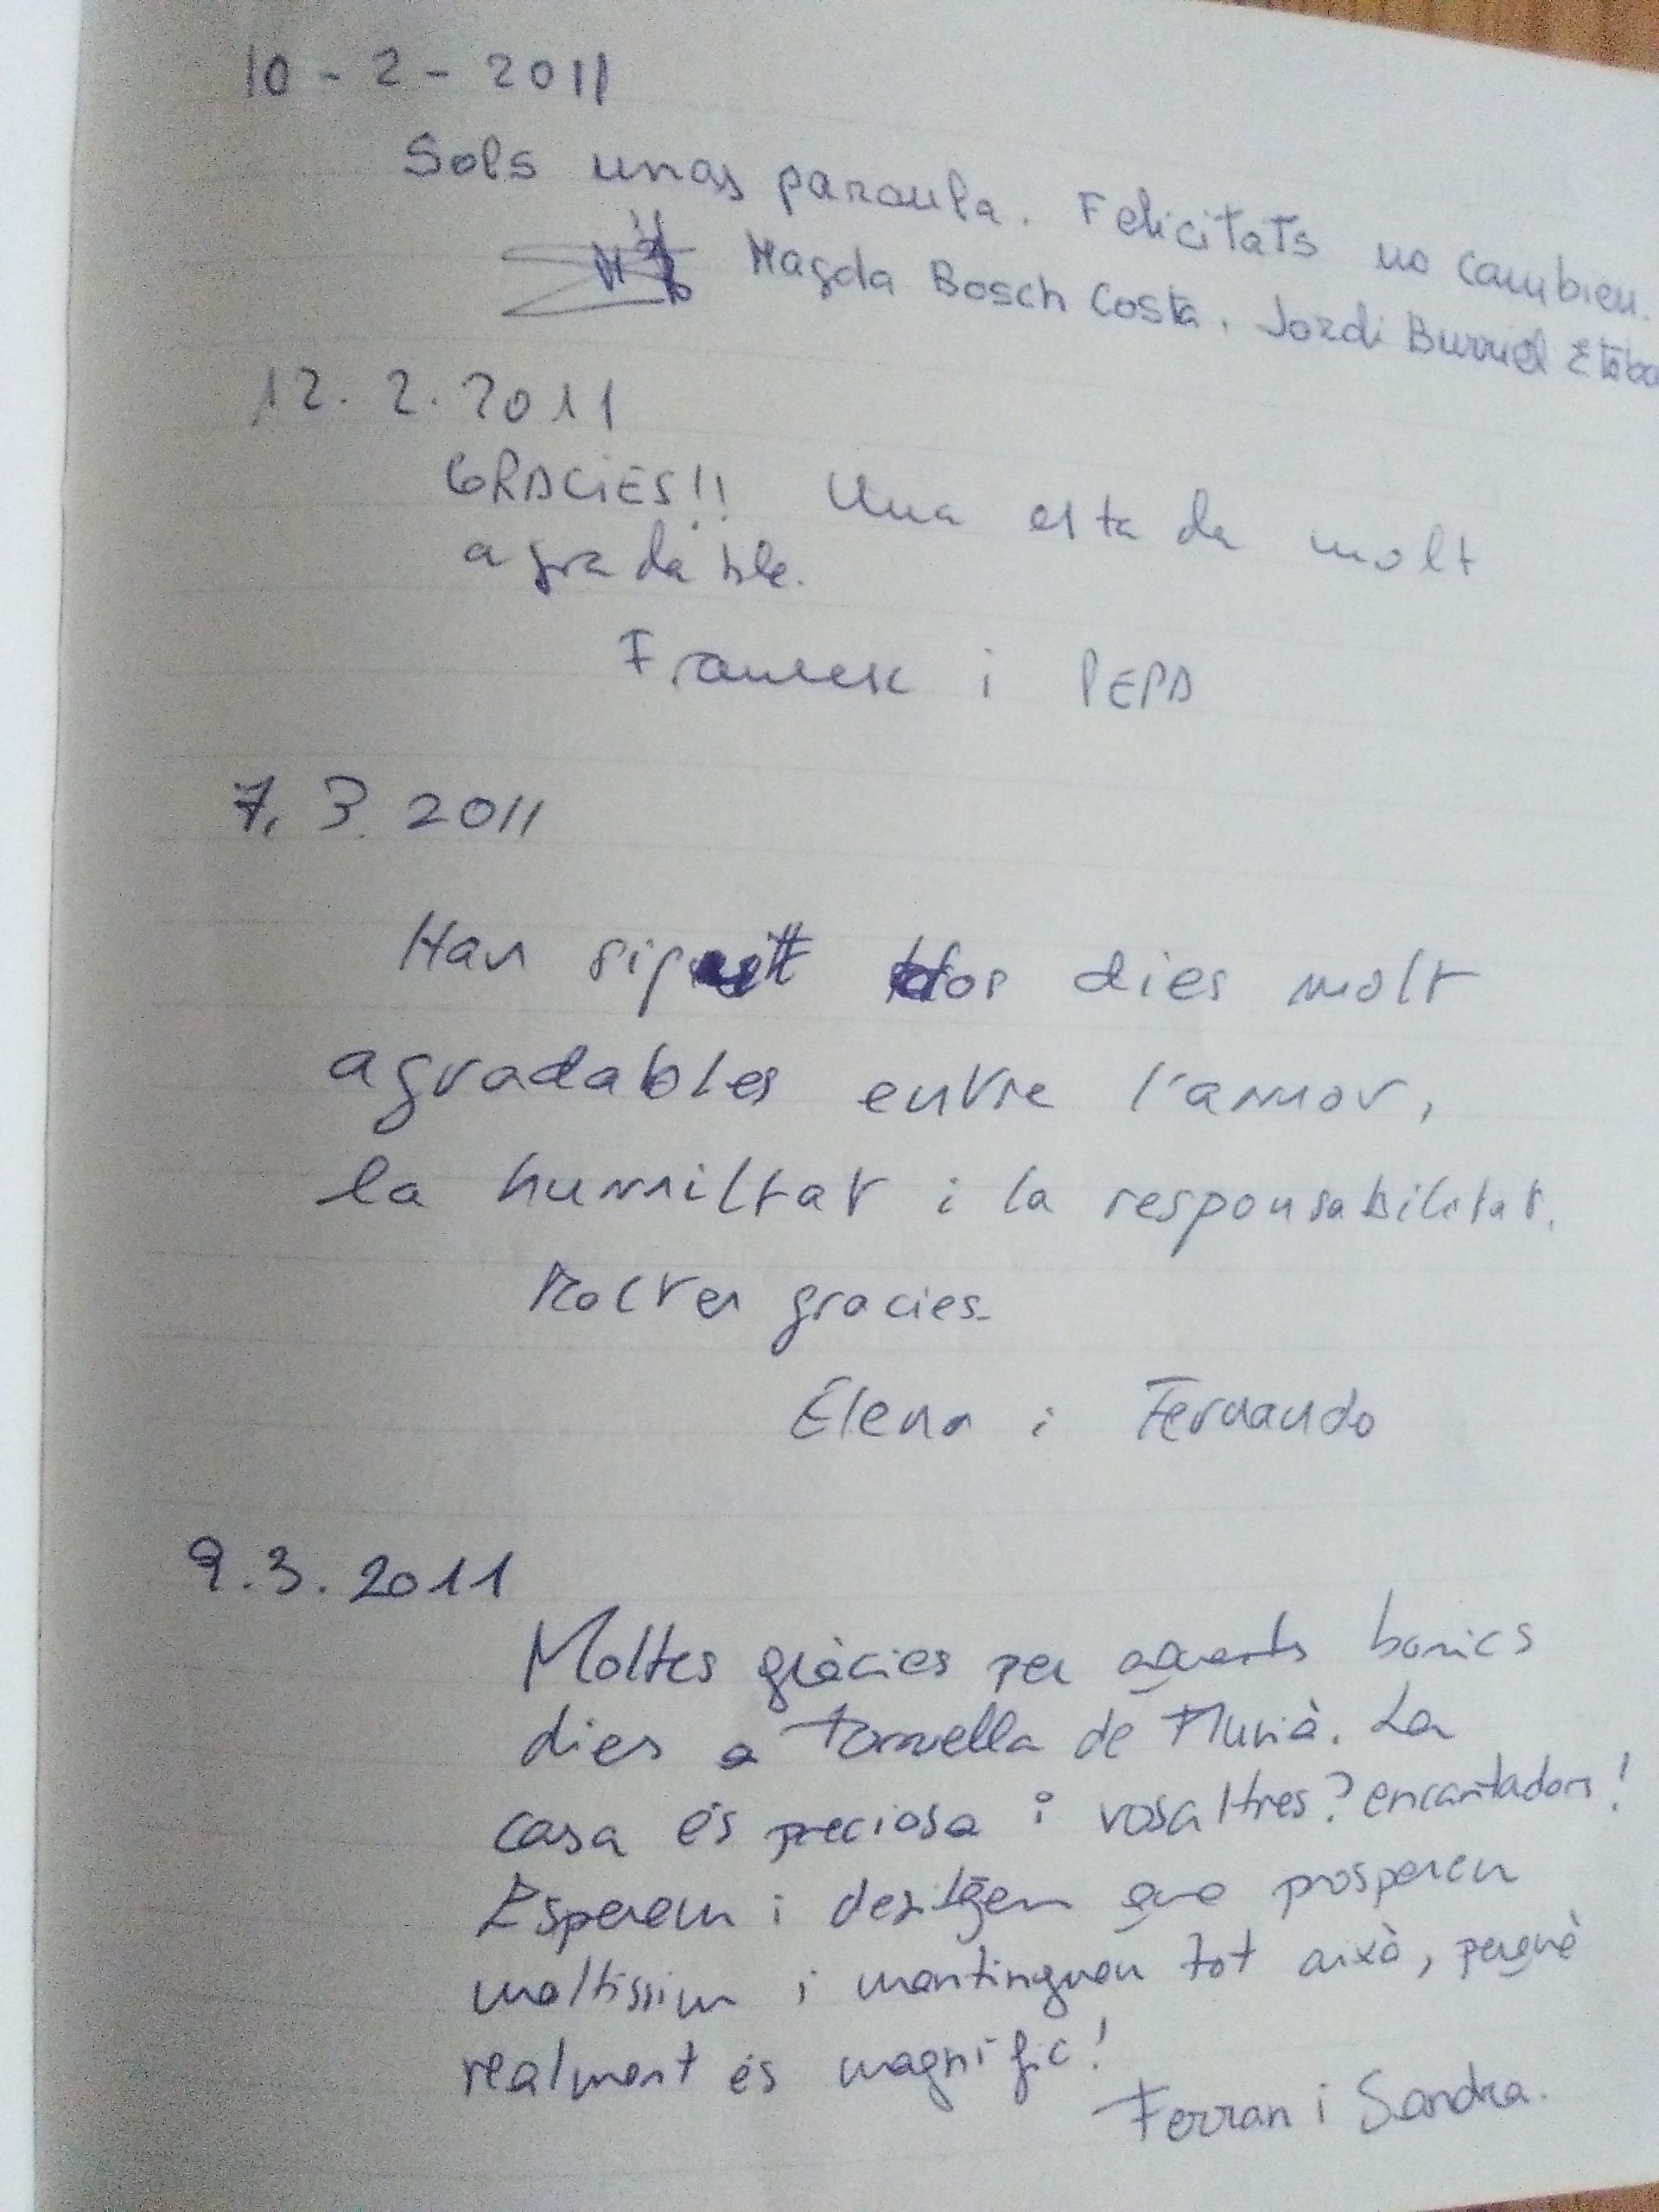 10 - 2 - 2011
Sols unas paraula. Felicitats no cambieu.
Magda Bosch Costa. Jordi Burriel
12. 2. 2011
GRACIES!! Una estada molt
agradable.
Francesc i PEPA
7. 3. 2011
Han sigut dos dies molt
agradables entre l'amor,
la humiltat i la responsabilitat.
Moltes gracies.
Elena i Fernando
9.3.2011
Moltes gràcies per aquests bonics
dies a Torroella de Fluvià. La
casa és preciosa i vosaltres? encantadors!
Esperem i desitgem que prospereu
moltissim i mantingueu tot això, perquè
realment és magnífic!
Ferran i Sandra.